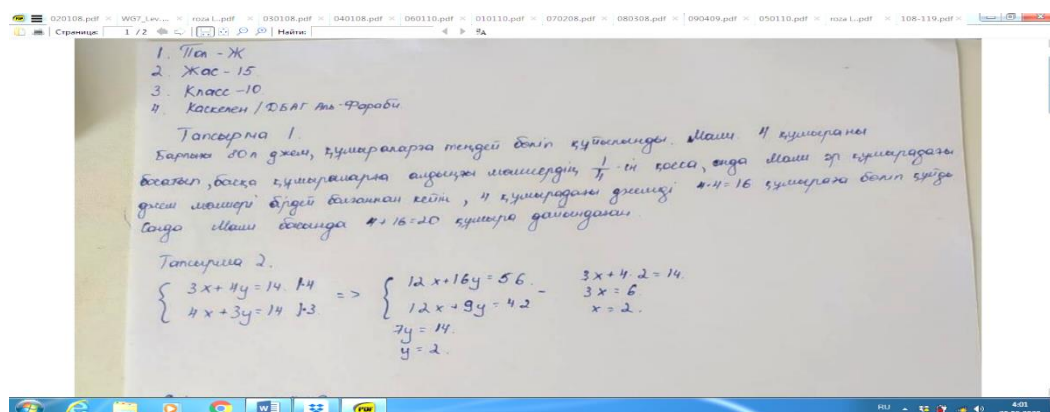 020108.pdf WG7_Lev.... roza L...pdf 030108.pdf 040108.pdf 060110.pdf 010110.pdf 070208.pdf 080308.pdf 090409.pdf 050110.pdf roza L...pdf 108-119.pdf
Страница: 1 / 2 Найти:
1. Пол - Ж
2. Жас - 15
3. Класс - 10
4. Каскелен / ДБАГ Аль-Фараби
Тапсырма 1.
Барлығы 80л джем, құмыраларға теңдей бөліп құйылынды. Маша 4 құмыраны
босатып, басқа құмыраларға алдыңғы мөлшердің 1/4-ін қосса, онда Маша әр құмырадағы
джем мөлшері бірдей болғаннан кейін, 4 құмырадағы джемді 4·4=16 құмыраға бөліп құйды
Сонда Маша басында 4+16=20 құмыра дайындаған
Тапсырма 2.
{ 3x+4y=14. |·4 => { 12x+16y=56. - 3x+4·2=14.
{ 4x+3y=14 |·3 { 12x+9y=42 3x=6.
7y=14. x=2.
y=2.
RU 4:01